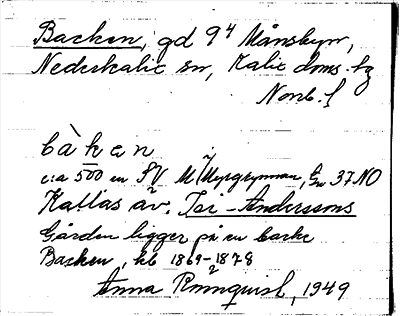 Backen, gd 9⁴ Månsbyn,
Nederkalix sn, Kalix doms. hg
Norrb. l
bàken
c:a 500 m SV M/ , Gn 37 NO
Kallas äv. Per-Anderssons
Gården ligger på en backe
Backen, kb 1869-1878
Anna Rönnquist, 1949